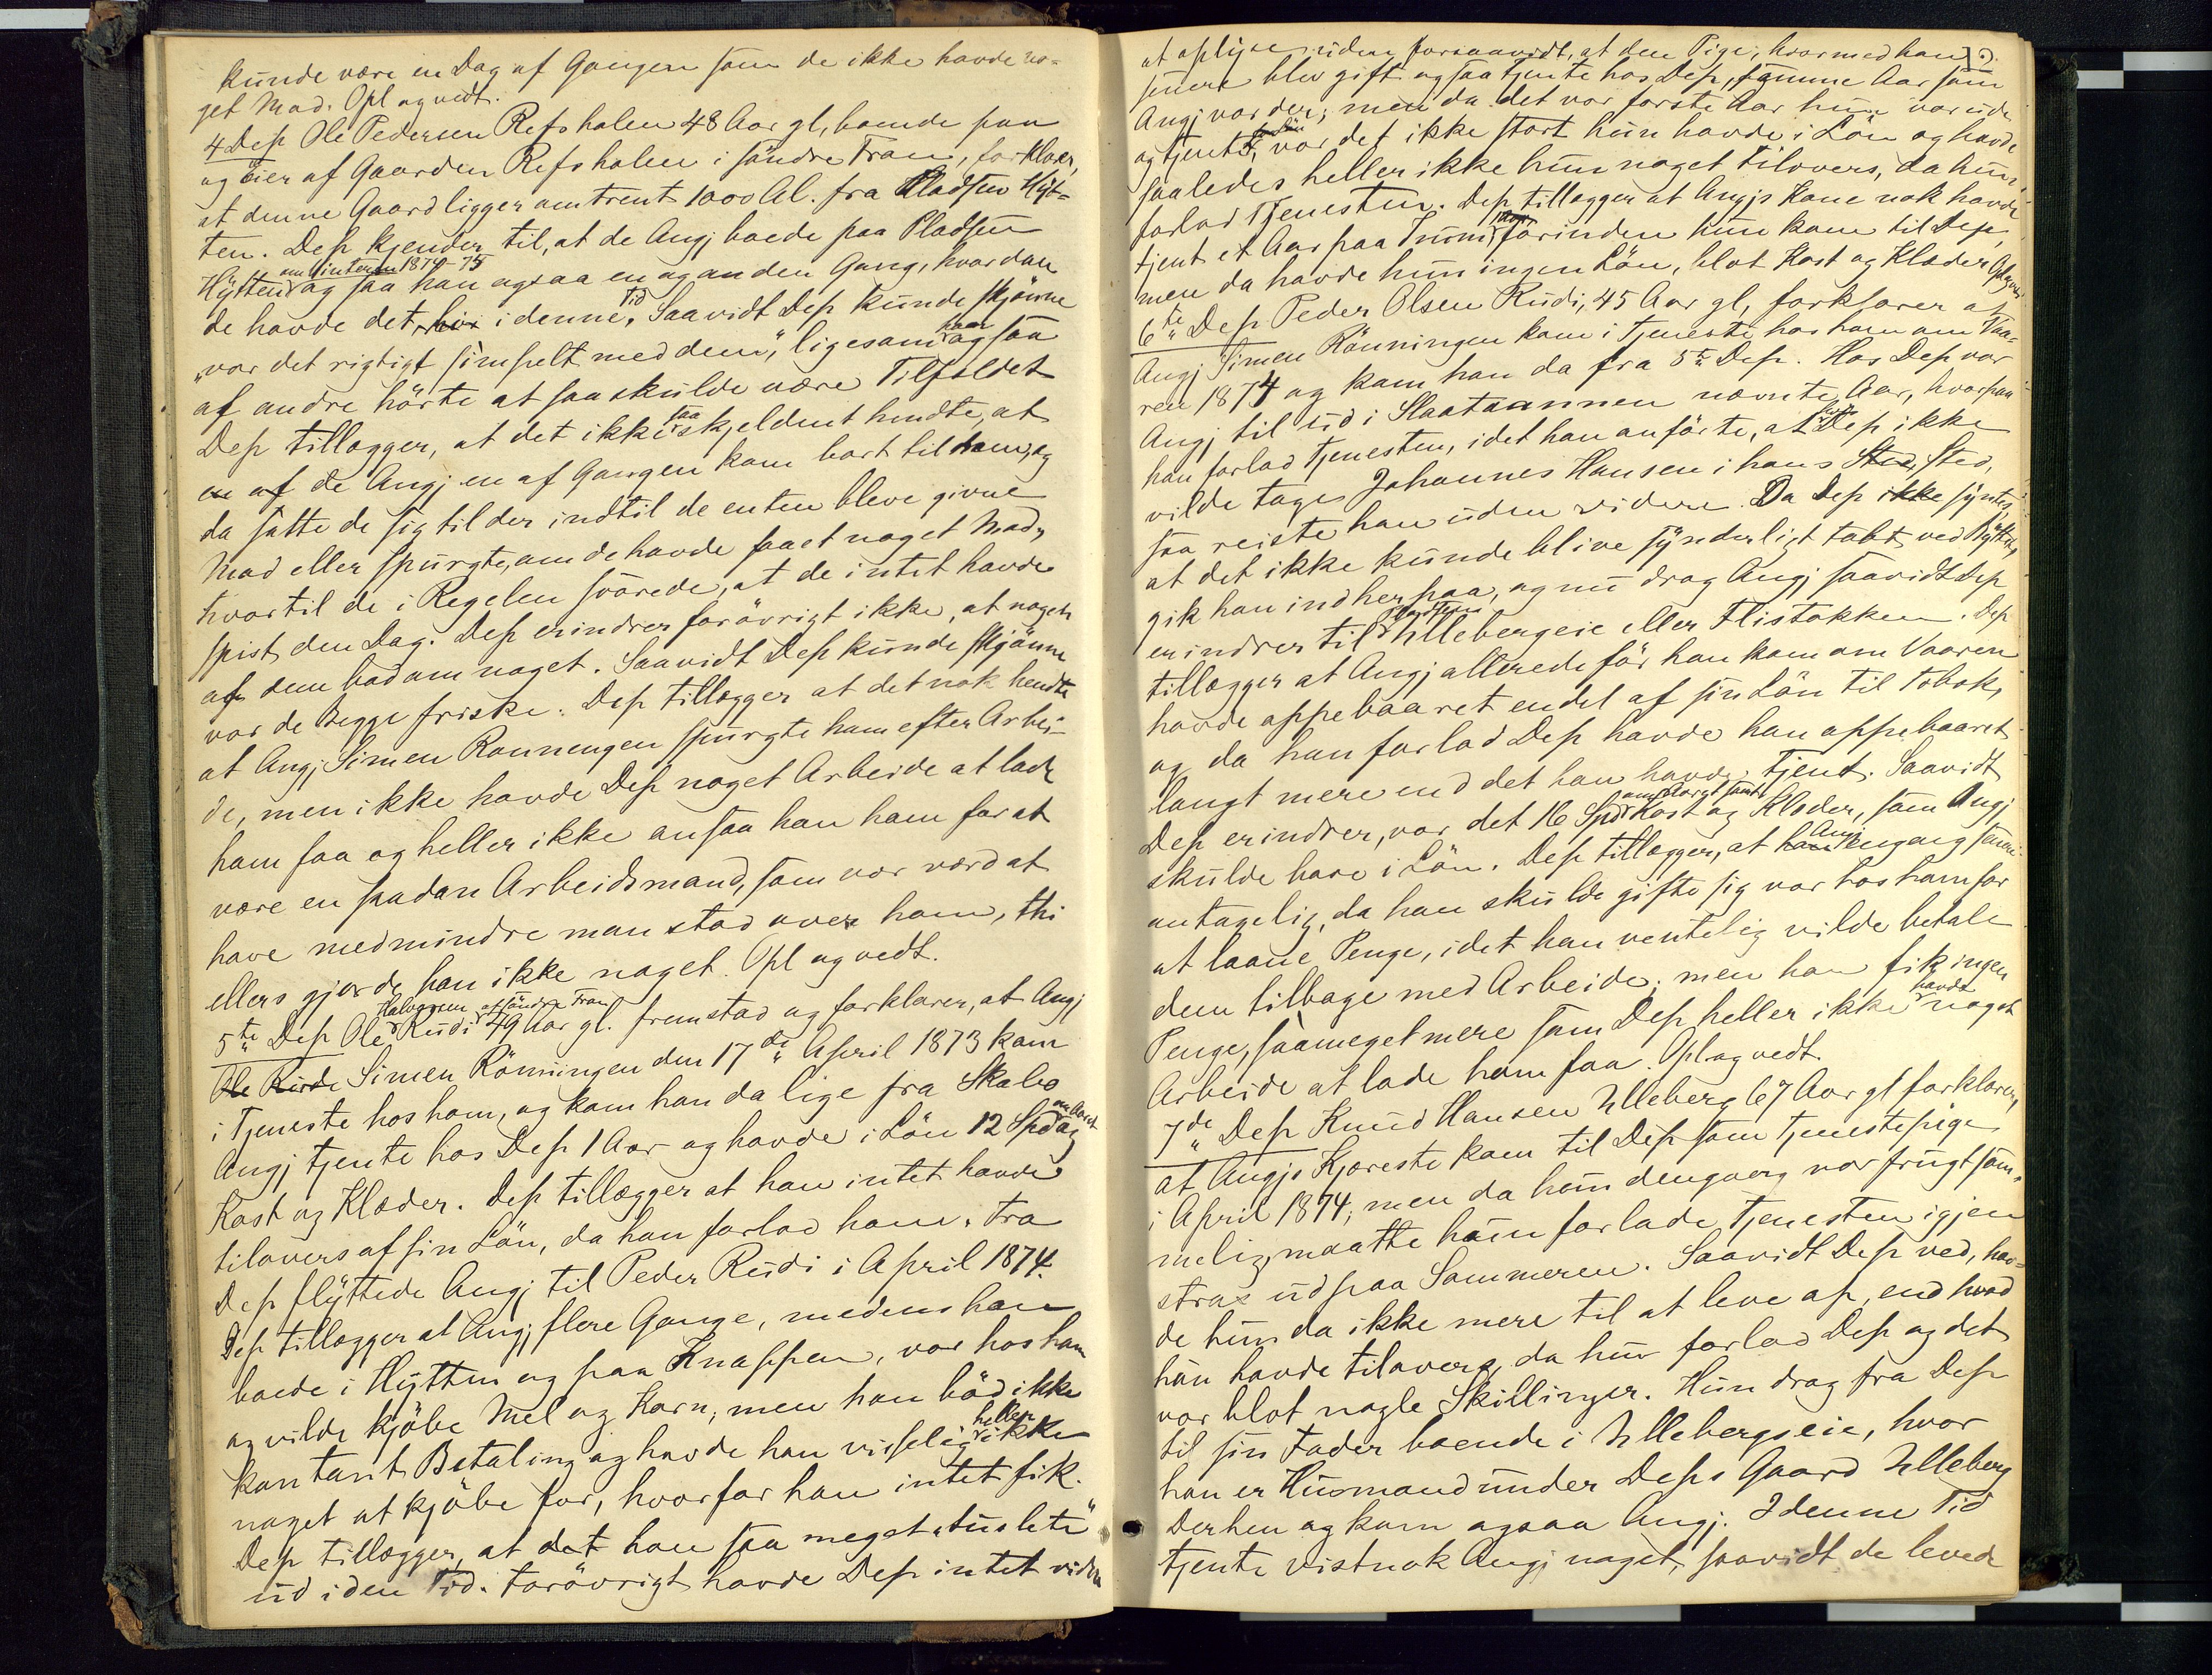 kunde være en Dag af Gangen som de ikke havde no-
get Mad. Opl og vedt.
4 Dep Ole Pedersen Refshalen 48 Aar gl, boende paa
og Eier af Gaarden Refshalen i söndre Fron, forklarer,
at denne Gaard ligger omtrent 1000 Al. fra Pladsen Hyt-
ten. Dep kjender til, at de Angj boede paa Pladsen
Hytten om Vinteren 1874-75 og saa han ogsaa en og anden Gang, hvordan
de havde det, i denne Tid. Saavidt Dep kunde skjönne
"var det rigtigt simpelt med dem", ligesom han ogsaa
af andre hörte at saa skulde være Tilfældet
Dep tillægger, at det ikke saa skjeldent hendte, at
en af de Angj en af Gangen kom bort til ham, og
da satte de sig til der indtil de enten bleve givne
Mad eller spurgte, om de havde faaet noget Mad,
hvortil de i Regelen svarede, at de intet havde
spist den Dag. Dep erindrer forövrigt ikke, at nogen
af dem bad om noget. Saavidt Dep kunde skjönne
var de Begge friske. Dep tillægger at det nok hendte
at Angj Simen Ronningen spurgte ham efter Arbei-
de, men ikke havde Dep noget Arbeide at lade
ham faa og heller ikke ansaa han ham for at
være en sadan Arbeidsmand, som var værd at
have medmindre man stod over ham, thi
ellers gjorde han ikke noget. Opl og vedt.
5te Dep Ole Halvorsen Rudi af söndre Fron 49 Aar gl. fremstod og forklarer, at Angj
Ole Rude Simen Rönningen den 17de April 1873 kom
i Tjeneste hos ham, og kom han da lige fra Skabo
Angj tjente hos Dep 1 Aar og havde i Lön 12 Spd om Aaret og
Kost og Klæder. Dep tillægger at han intet havde
tilovers af sin Lön, da han forlod ham. Fra
Dep flyttede Angj til Peder Rudi i April 1874.
Dep tillægger at Angj flere Gange, medens han
boede i Hytten og paa Knappen, var hos ham
og vilde kjöbe Mel og Korn, men han böd ikke
kontant Betaling og havde han visselig heller ikke
noget at kjöbe for, hvorfor han intet fik.
Dep tillægger, at det han saa meget "tuslete"
ud i den Tid. Forövrigt havde Dep intet videre
at oplyse uden forsaavidt, at den Pige, hvormed han
senere blev gift ogsaa tjente hos Dep, samme Aar som
Angj var der; men da det var förste Aar hun var ude
og tjente for Lön, var det ikke stort hun havde i Lön og havde
saaledes heller ikke hun noget tilovers, da hun
forlod Tjenesten. Dep tillægger at Angjs Kone nok havde
tjent et Aar paa forinden hun kom til Dep,
men da havde hun ingen Lön, blot Kost og Klæder Opl og vedt
6te Dep Peder Olsen Rudi, 45 Aar gl, forklarer at
Angj Simen Rönningen kom i Tjeneste hos ham om Vaa-
ren 1874 og kom han da fra 5te Dep. Hos Dep var
Angj til ud i Slaataannen nævnte Aar, hvorpaa
han forlod Tjenesten, idet han anförte, at Dep ikke
vilde tage Johannes Hansen i hans Sted, Sted,
saa reiste han uden videre. Da Dep ikke syntes,
at det ikke kunde blive synderligt tabt ved Bytting
gik han ind herpaa, og nu drog Angj saavidt Dep
erindrer til Pladsen Ullebergeie eller Flistokken. Dep
tillægger at Angj allerede för han kom om Vaaren
havde oppebaaret endel af sin Lön til Tobak,
og da han forlod Dep havde han oppebaaret
langt mere end det han havde tjent. Saavidt
Dep erindrer, var det 16 Spd om Aaret samt Kost og Klæder, som Angj
skulde have i Lön. Dep tillægger, at ham Angj engang
antagelig, da han skulde gifte sig var hos ham for
at laane Penge, idet han ventelig vilde betale
dem tilbage med Arbeide; men han fik ingen
Penge, saameget mere som Dep heller ikke havde noget
Arbeide at lade ham faa. Opl og vedt.
7de Dep Knud Hansen Ulleberg 67 Aar gl forklarer,
at Angjs Kjæreste kom til Dep som Tjenestepige
i April 1874; men da hun dengang var frugtsom-
melig, maatte hun forlade Tjenesten igjen
strax ud paa Sommeren. Saavidt Dep ved, hav-
de hun da ikke mere til at leve af, end hvad
hun havde tilovers, da hun forlod Dep og det
var blot nogle Skillinger. Hun drog fra Dep
til sin Fader boende i Ullebergseie, hvor
han er Husmand under Deps Gaard Ulleberg
Derhen og kom ogsaa Angj. I denne Tid
tjente vistnok Angj noget, saavidt de levede